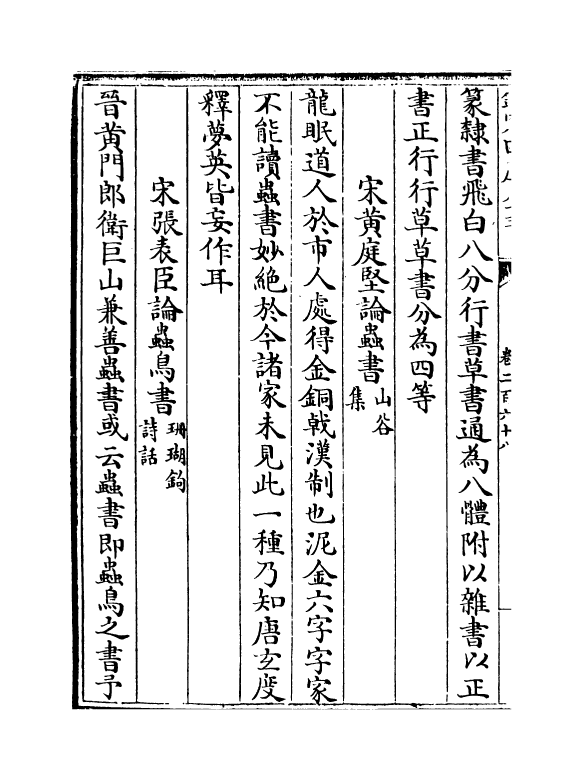 卷二百六十八
篆隷書飛白八分行書草書通為八體附以雜書以正
書正行行草草書分為四等
宋黄庭堅論蟲書山谷集
龍眠道人於市人處得金銅戟漢制也泥金六字字家
不能讀蟲書妙絶於今諸家未見此一種乃知唐玄度
釋夢英皆妄作耳
宋張表臣論蟲鳥書珊瑚鉤詩話
晉黄門郎衛巨山兼善蟲書或云蟲書即蟲鳥之書予